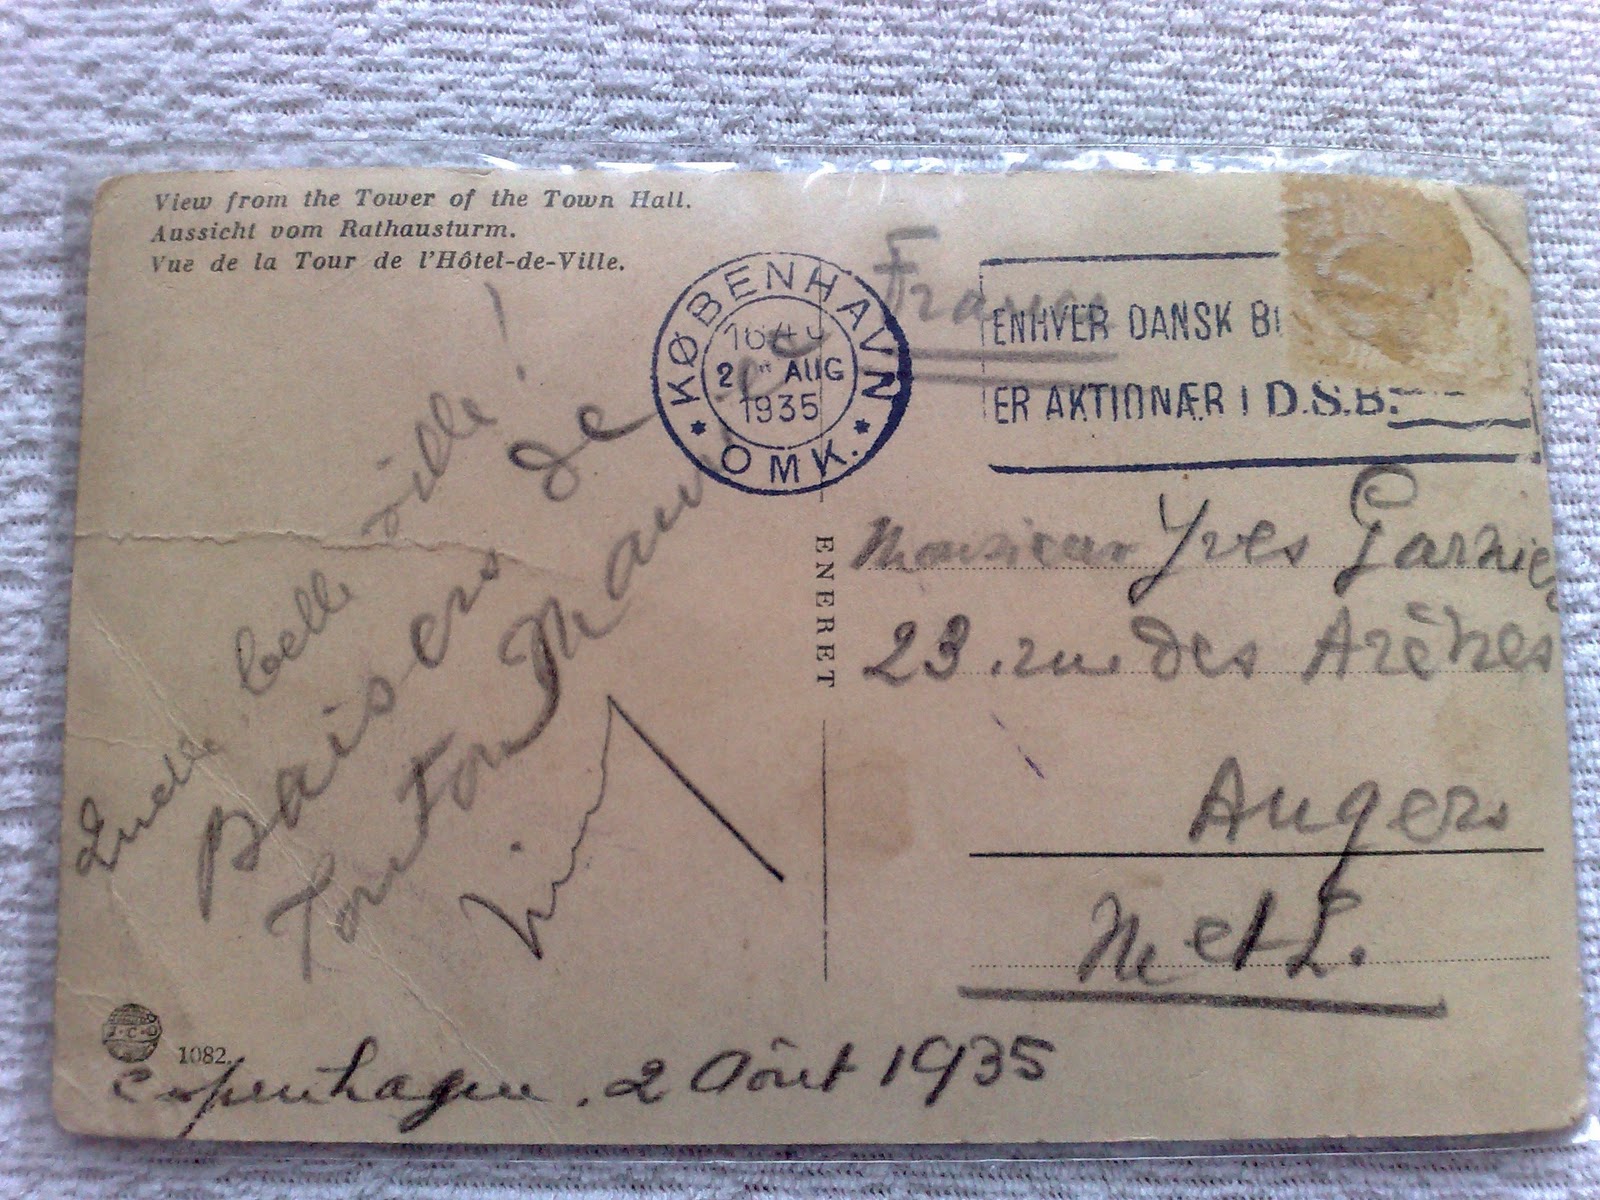 View from the Tower of the Town Hall.
Aussicht vom Rathausturm.
Vue de la Tour de l'Hôtel-de-Ville.
KØBENHAVN
2 AUG
1935
OMK.
France
ENHVER DANSK B
ER AKTIONÆR I D.S.B.
belle ville!
Baisers de
Tonton
ENERET
Monsieur Yves Garnier
23 rue des Arènes
Angers
M et L.
1082.
Copenhague. 2 Août 1935